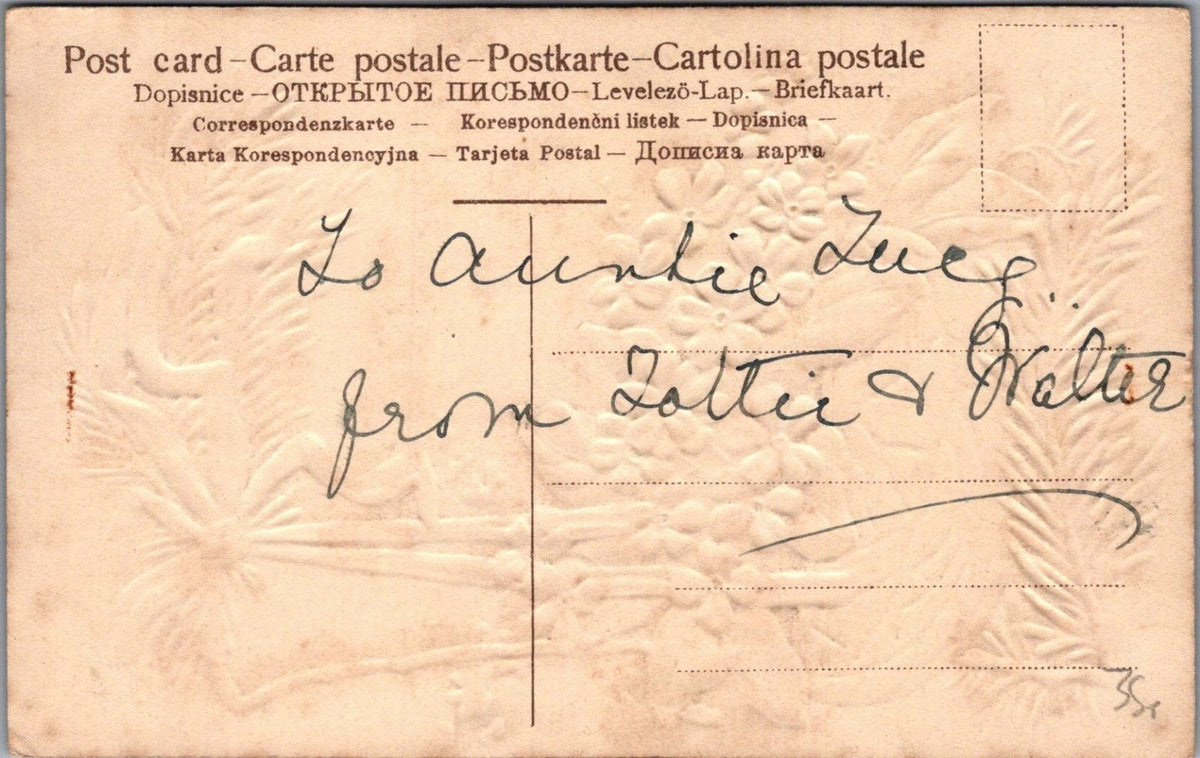 Post card – Carte postale – Postkarte – Cartolina postale
Dopisnice – ОТКРЫТОЕ ПИСЬМО – Levelezö-Lap. – Briefkaart.
Correspondenzkarte – Korespondenčni listek – Dopisnica –
Karta Korespondencyjna – Tarjeta Postal – Дописна карта
To Auntie Lucy
from Lottie & Walter